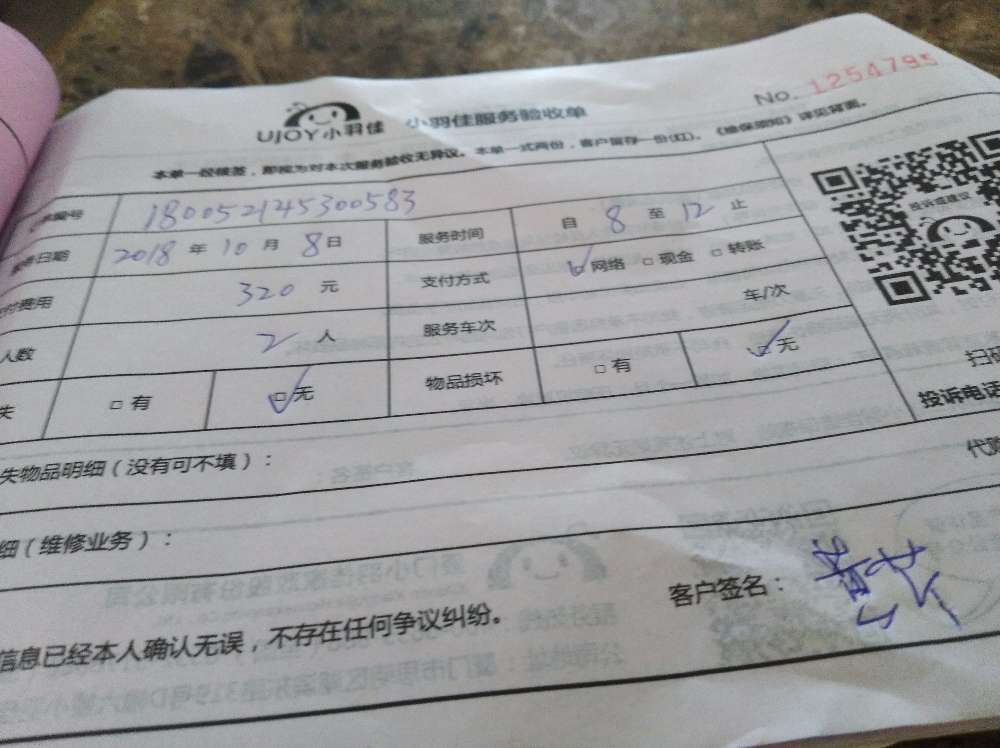 No. 1254795
UJOY小羽佳 小羽佳服务验收单
本单一经核签，即视为对本次服务验收无异议。本单一式两份，客户留存一份(红)。《维保须知》详见背面。
编号 180052145300583
日期 2018 年 10 月 8 日 服务时间 自 8 至 12 止
付费用 320 元 支付方式 □ 网络 □ 现金 □ 转账
人数 2 人 服务车次 车/次
失 □ 有 □ 无 物品损坏 □ 有 □ 无
投诉或建议
扫码
投诉电话
失物品明细（没有可不填）：
代购
细（维修业务）：
客户签名：
信息已经本人确认无误，不存在任何争议纠纷。